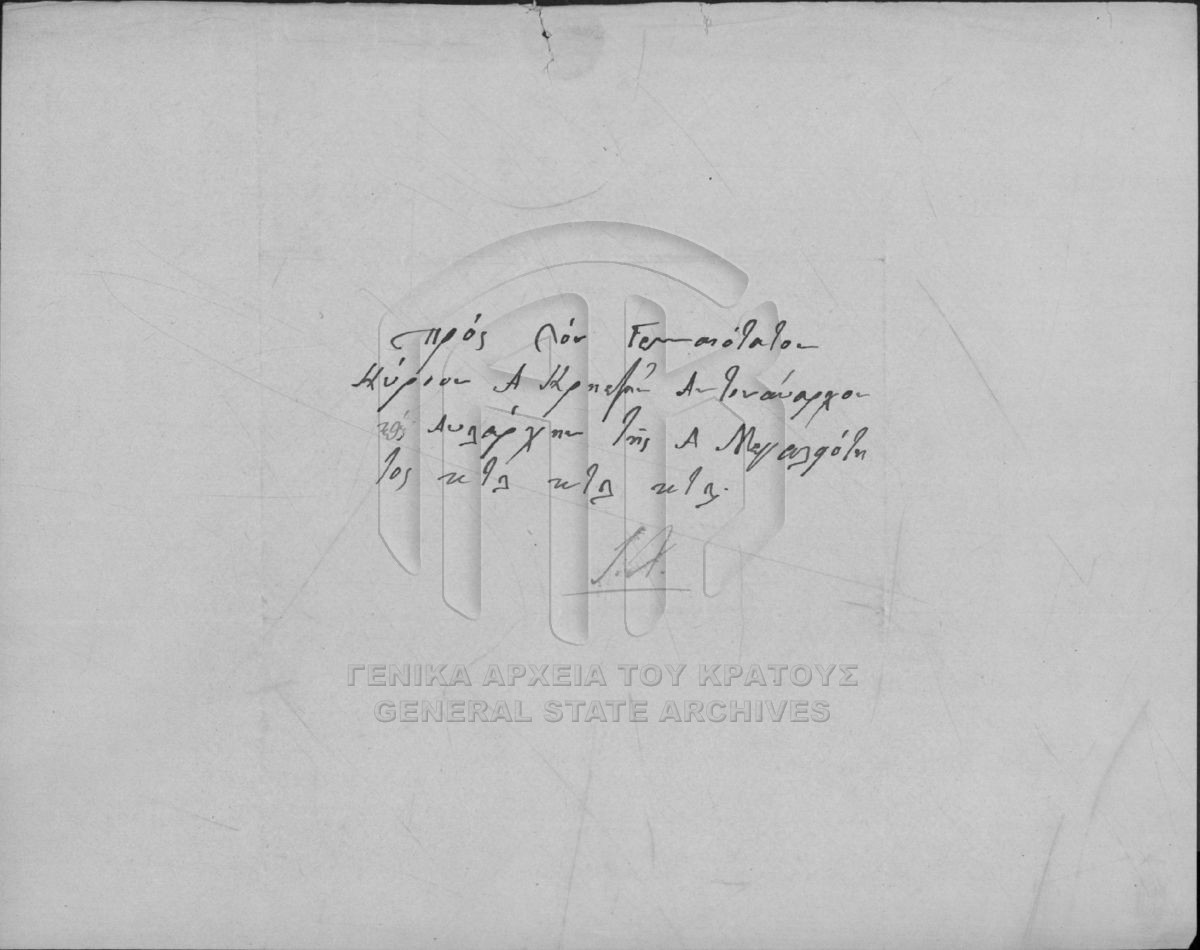 πρός τόν Γενναιότατον
Κύριον Α Κρηεζήν Αντινάυαρχον
κ Αυλάρχην τῆς Α Μεγαλιότη
τος κτλ κτλ κτλ.
ΓΕΝΙΚΑ ΑΡΧΕΙΑ ΤΟΥ ΚΡΑΤΟΥΣ
GENERAL STATE ARCHIVES